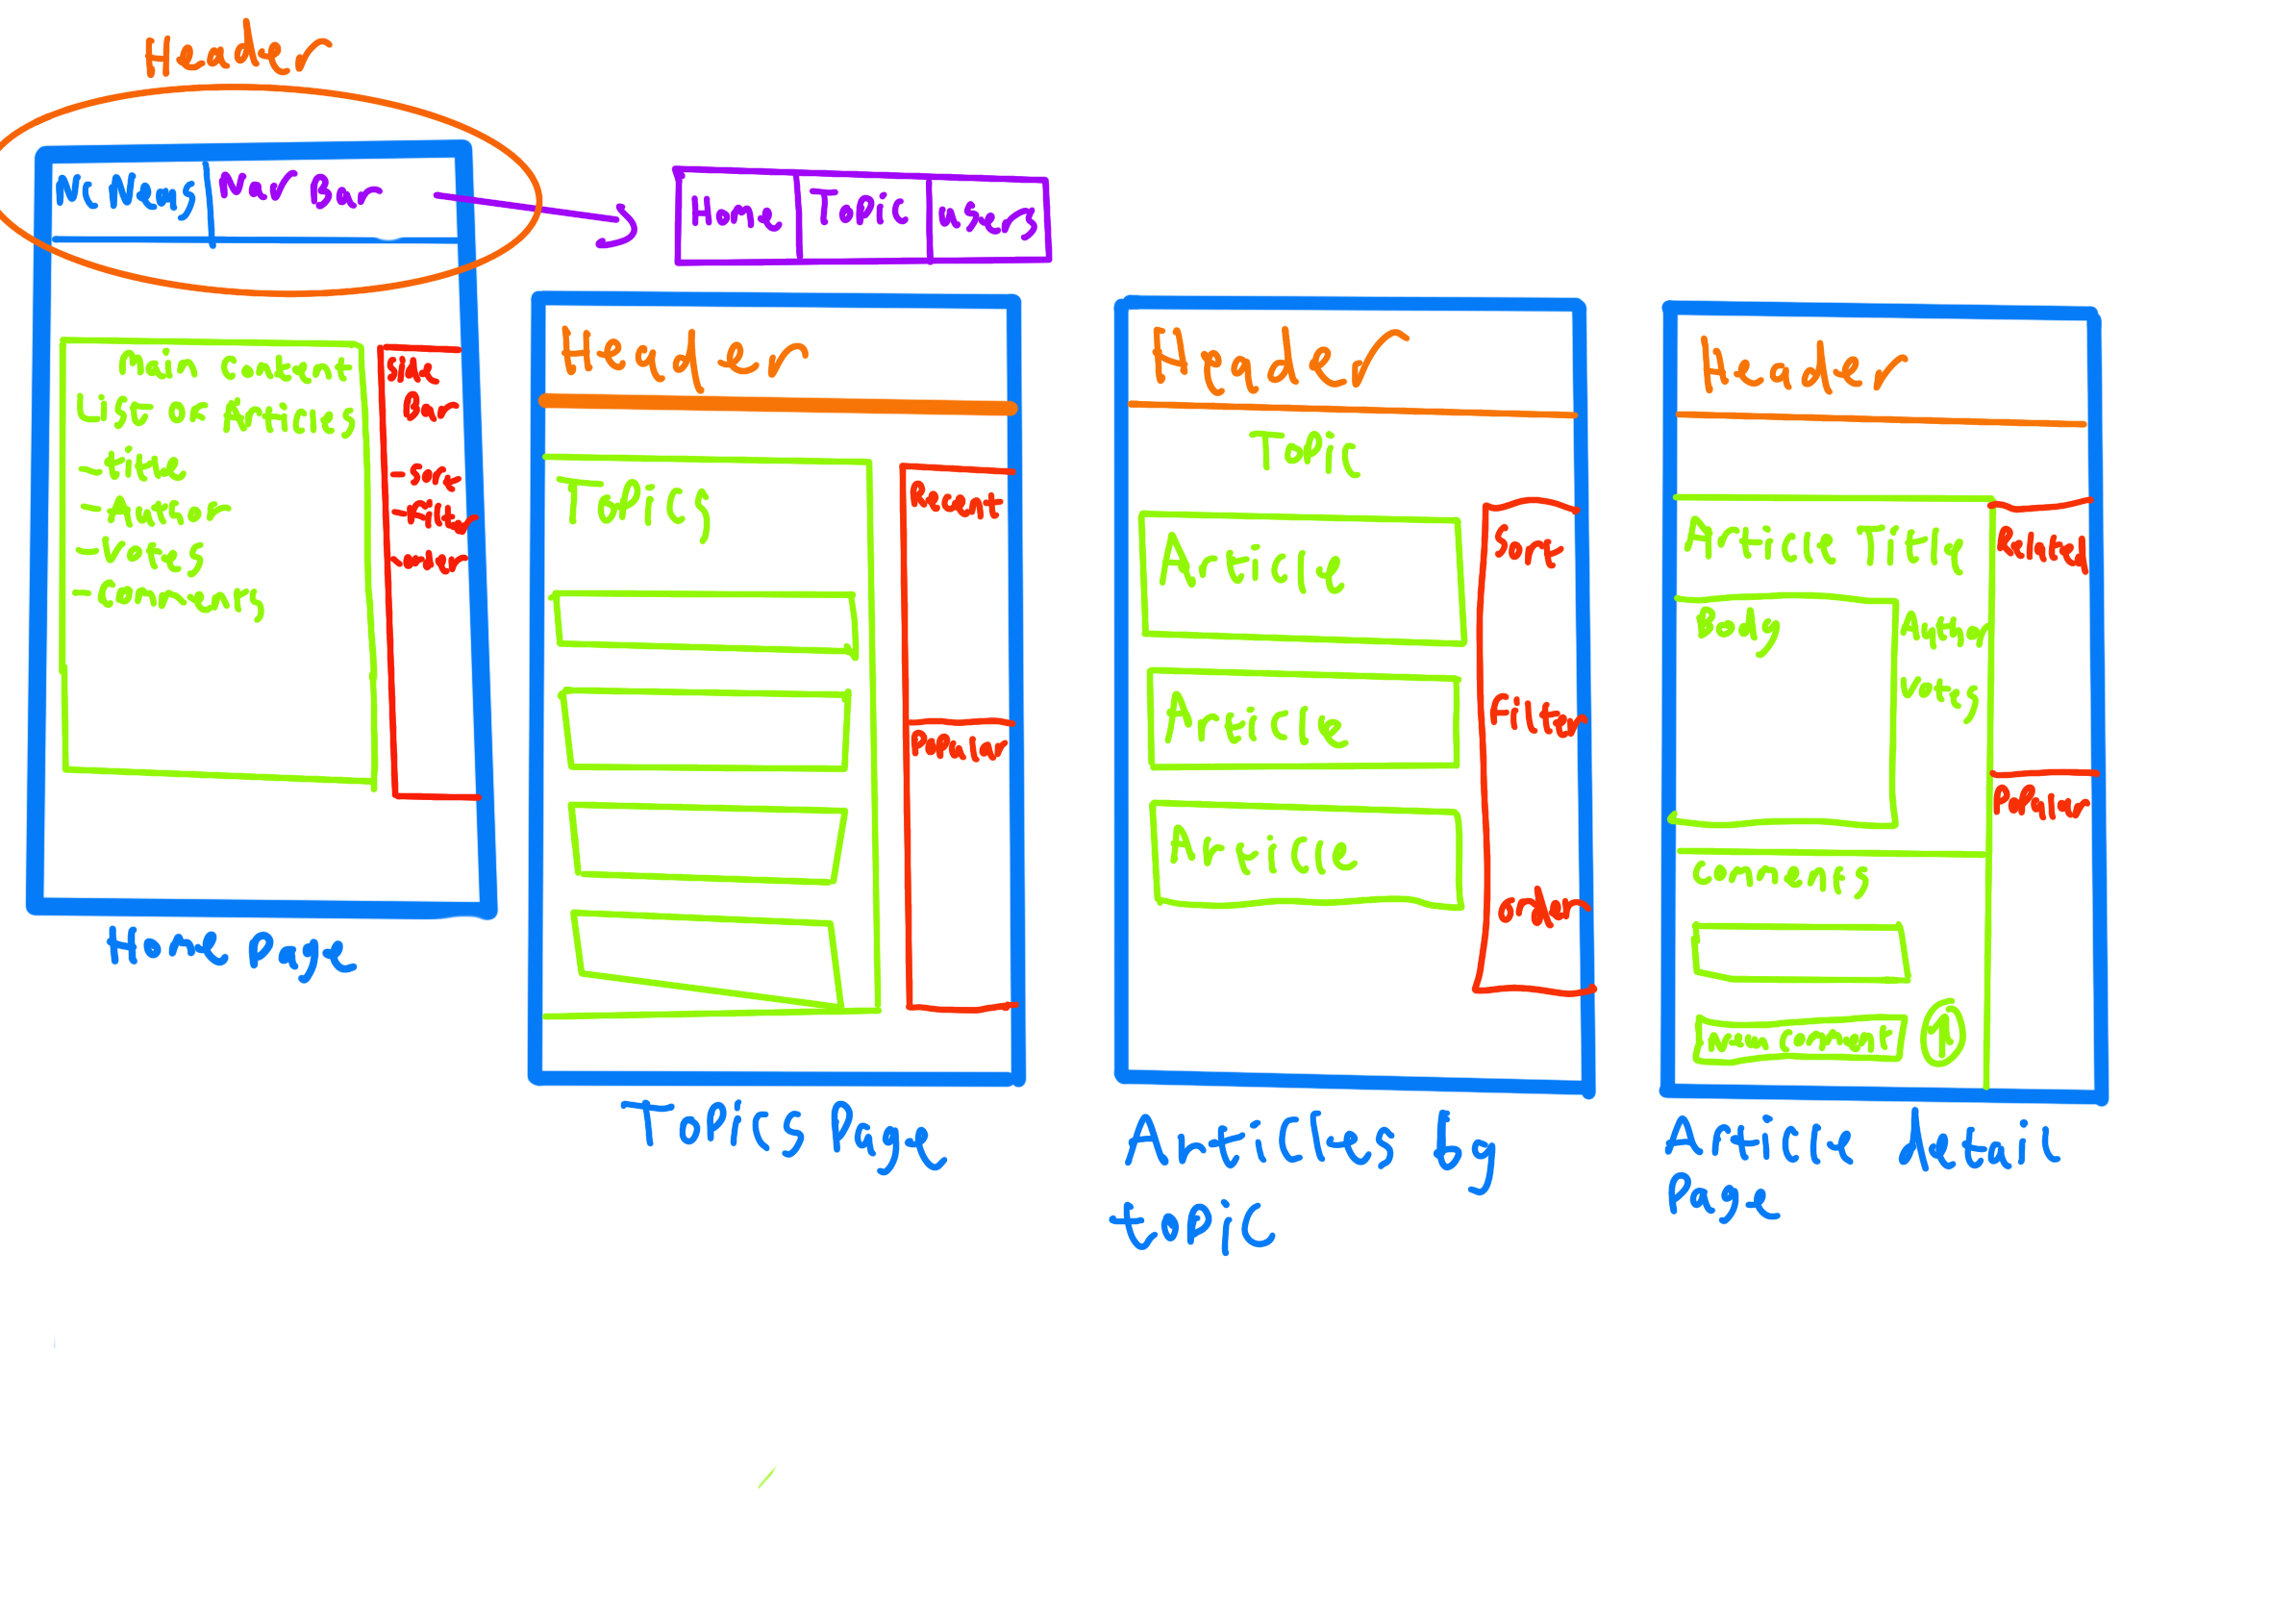 Header
Nc News
Nav Bar
Home
Topic
users
Main Content
List of Articles
- title
- Author
- Votes
- Comments
Side
Bar
- Sort
- Filter
- order
Home Page
Header
Topics
Recent
Popular
Topics Page
Header
Topic
Article
Article
Article
Sort
Filter
order
Articles by
topic
Header
Article Title
Body
Author
Votes
Related
Popular
Comments
new comment
Article detail
Page